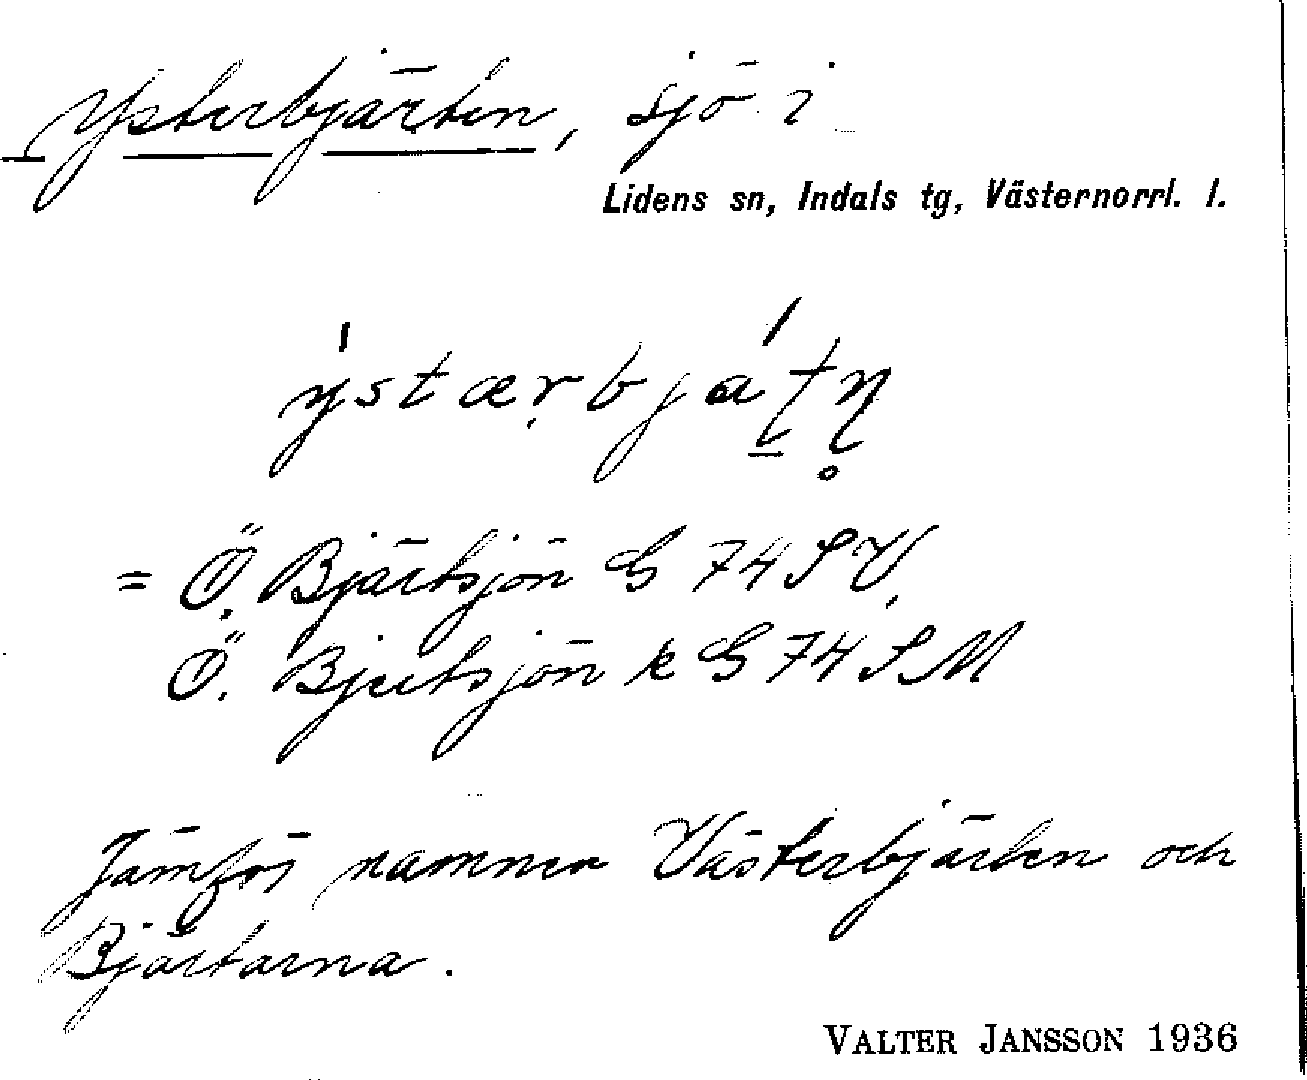 Ysterbjärten, sjö i
Lidens sn, Indals tg, Västernorrl. l.
= Ö. Bjärtsjön G 74 SV,
Ö. Bjertsjön k G 74 SM
Jämför namnen Västerbjärten och
Bjärtarna.
VALTER JANSSON 1936